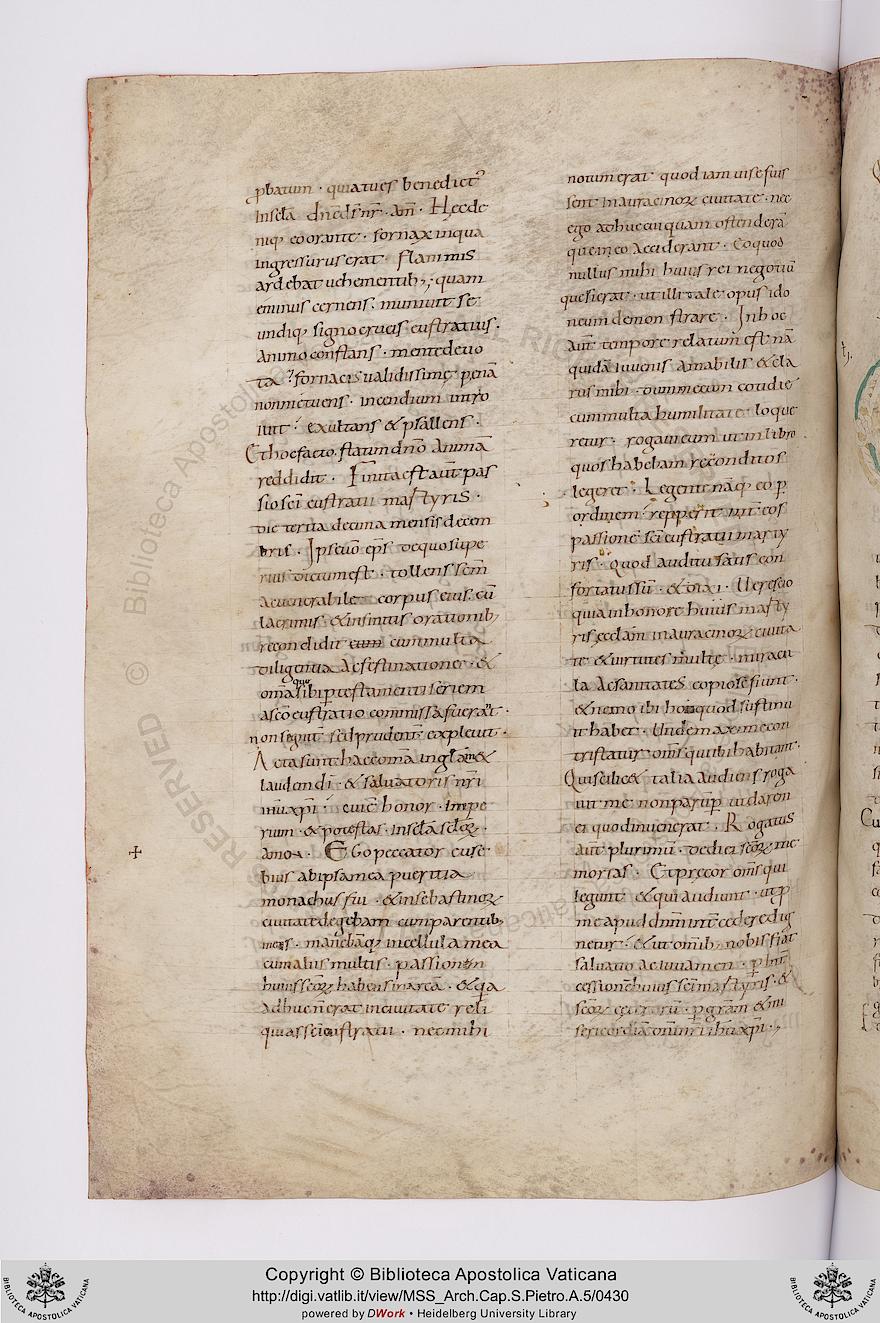 ꝓbatum · quia tu es benedictꝰ
in sęła dñe dś nr̃ · am̃ · Hęc de
niq; eo orante · fornax in qua
ingressurus erat · flammis
ardebat uehementib; · quam
eminus cernens · muniuit se
undiq; signo crucis eustratius ·
Animo constans · mente deuo
ta · fornacis ualidissimę penã
non metuens · incendium intro
iuit · exultans & psallens ·
Et hoc facto · statim dño animã
reddidit · Finita est aut̃ pas
sio sc̃i eustratii martyris ·
die tertia decima mensis decem
bris · Ipse uo ep̃s de quo supe
rius dictum est · tollens sc̃m
ac uenerabile corpus eius · cũ
lacrimis & infinitis orationib;
recondidit eum cum multa
diligentia ac festinatione · &
om̃a que sibi ꝑ testamenti seriem
a sc̃o eustratio commissa fuerat ·
non segnit̃ sed prudent̃ expleuit ·
Acta sunt hęc om̃a in głam &
laudem di · & saluatoris nr̃i
ihu xp̃i · cui ẽ honor · impe
rium · & potestas · in sęła sęloꝝ ·
amen · Ego peccator euse
bius ab ipsa mea pueritia
monachus fui · & in sebastinoꝝ
ciuitate degebam cum parentib;
meis · manebaq; in cellula mea
cum aliis multis · passionem
huius sc̃oꝝ habens in arca · & qa
adhuc ñ erat in ciuitate reli
quias sc̃i eustratii · nec mihi
notum erat · quod iam uise fuis
sent in auracinoꝝ ciuitate · nec
ego adhuc cuiquam ostenderã
que in eo acciderant · Eo quod
nullus mihi huius rei negotiũ
quesierat · ut illi tale opus ido
neum demonstrare · In hoc
aut̃ tempore relatum est · nã
quidã iuuenis amabilis & cla
rus mihi · dum mecum cotidie
cum multa humilitate loque
retur · rogaui eum ut in libro
quos habebam reconditos
legeret · Legente naq; eo ꝑ
ordinem · repperit int̃ eos
passionẽ sc̃i eustratii marty
ris · Quod auditu satis con
fortatus sũ · & dixi · Uere scio
quia in honore huius marty
ris ęcclam in auracinoꝝ ciuita
te & uirtutes multę · miracu
la ac sanitates copiose fiunt ·
& nemo ibi hoc quod sustinu
it habet · Unde maxime con
tristatur om̃s qui ibi habitant ·
Quiscilic& talia audiens roga
uit me non parũper ut darem
ei quod inuenerat · Rogatus
aut̃ plurimũ · dedi ei sc̃oꝝ me
morias · Et precor om̃s qui
legunt & qui audiunt · ut ꝓ
me apud dñm int̃cedere dig
netur · & ut om̃ib; nobis fiat
saluatio ac iuuamen · ꝑ int̃
cessionẽ huius sc̃i martyris · &
sc̃oꝝ ceterorũ · ꝑ gram & mi
sericordiã dom̃i nr̃i ihu xp̃i ·
Copyright © Biblioteca Apostolica Vaticana
http://digi.vatlib.it/view/MSS_Arch.Cap.S.Pietro.A.5/0430
powered by DWork • Heidelberg University Library